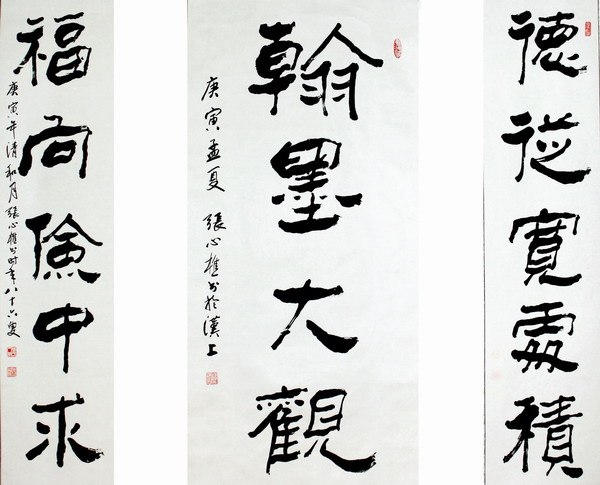 德從寬處積
翰墨大觀
庚寅孟夏 張心樵书於漢上
福向儉中求
庚寅年清和月張心樵书時年八十六叟